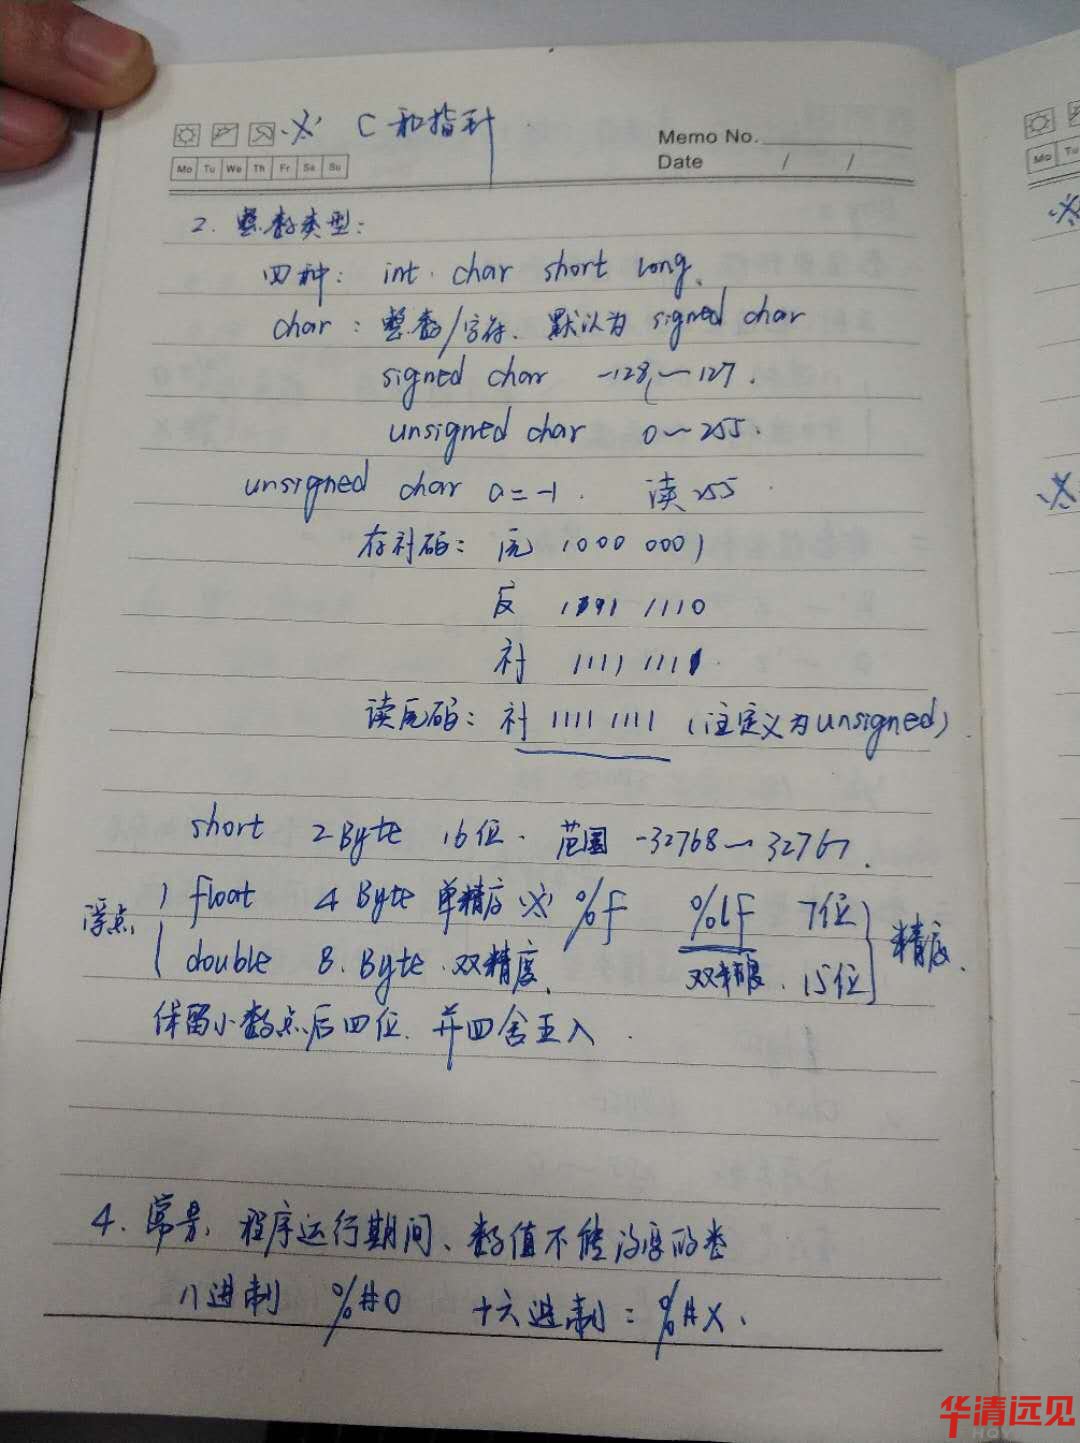 ※ C和指针
Memo No.
Mo Tu We Th Fr Sa Su
Date / /
2. 整数类型:
四种: int. char short long.
char: 整数/字符. 默认为 signed char
signed char -128~127.
unsigned char 0~255.
unsigned char a=-1. 读255
存补码: 原 1000 0001
反 1111 1110
补 1111 1111.
读原码: 补 1111 1111 (注定义为unsigned).
short 2Byte 16位. 范围 -32768~32767.
浮点 { float 4 Byte 单精度 ※ %f %lf 7位 } 精度.
double 8. Byte. 双精度. 双精度. 15位
保留小数点后四位. 并四舍五入.
4. 常量, 程序运行期间、数值不能改变的
八进制 %#o 十六进制: %#x.
Mo Tu
※
※
华清远见